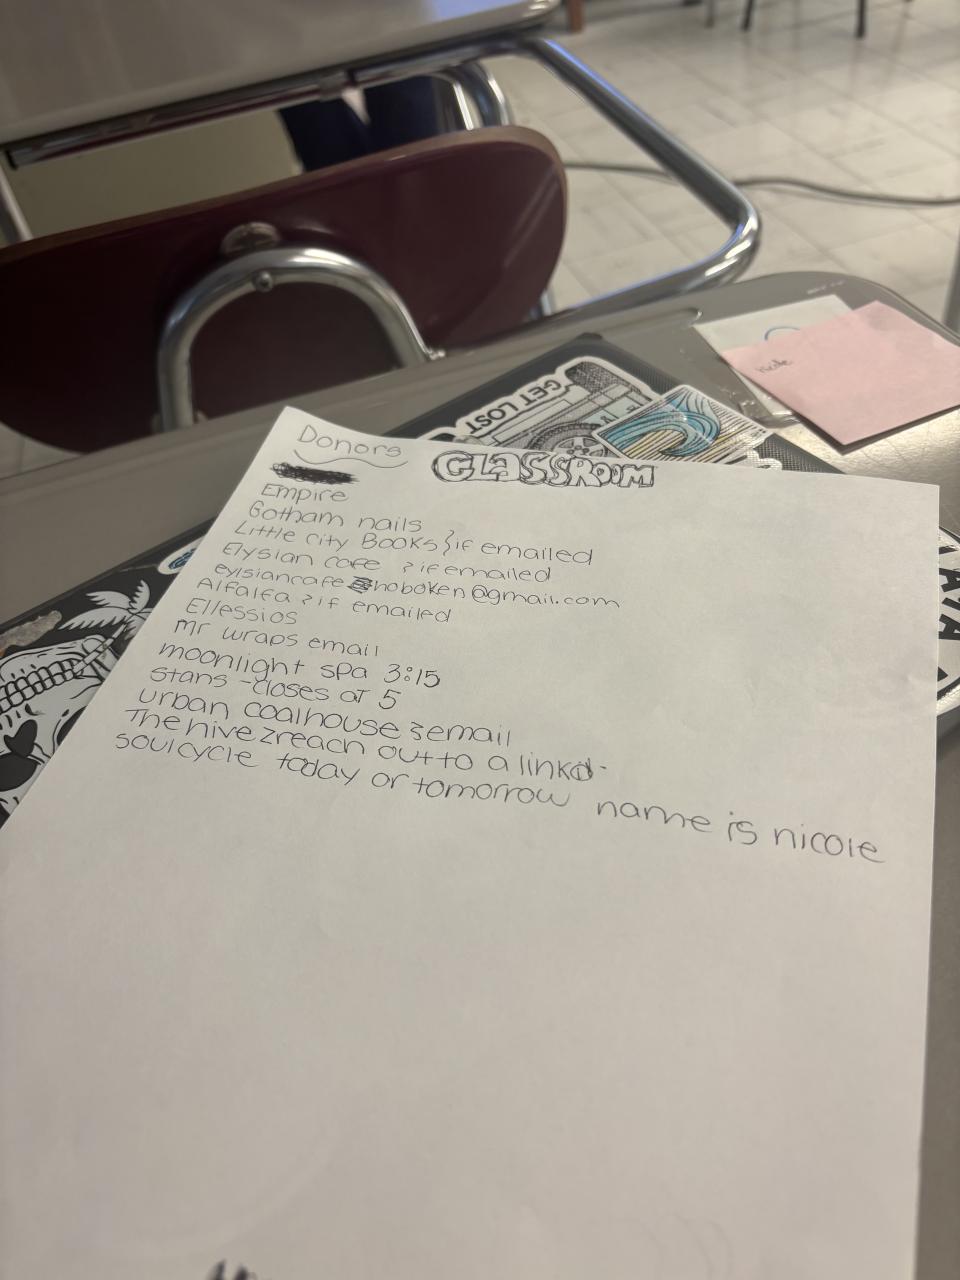 GET LOST
nicole
Donors
GLASSROOM
Empire
Gotham nails
Little city Books }if emailed
Elysian cafe }if emailed
eylsiancafe hoboken@gmail.com
Alfalfa }if emailed
Ellessios
Mr wraps email
moonlight spa 3:15
stans -closes at 5
urban coalhouse }email
The hive }reach out to a link
soulcycle today or tomorrow name is nicole